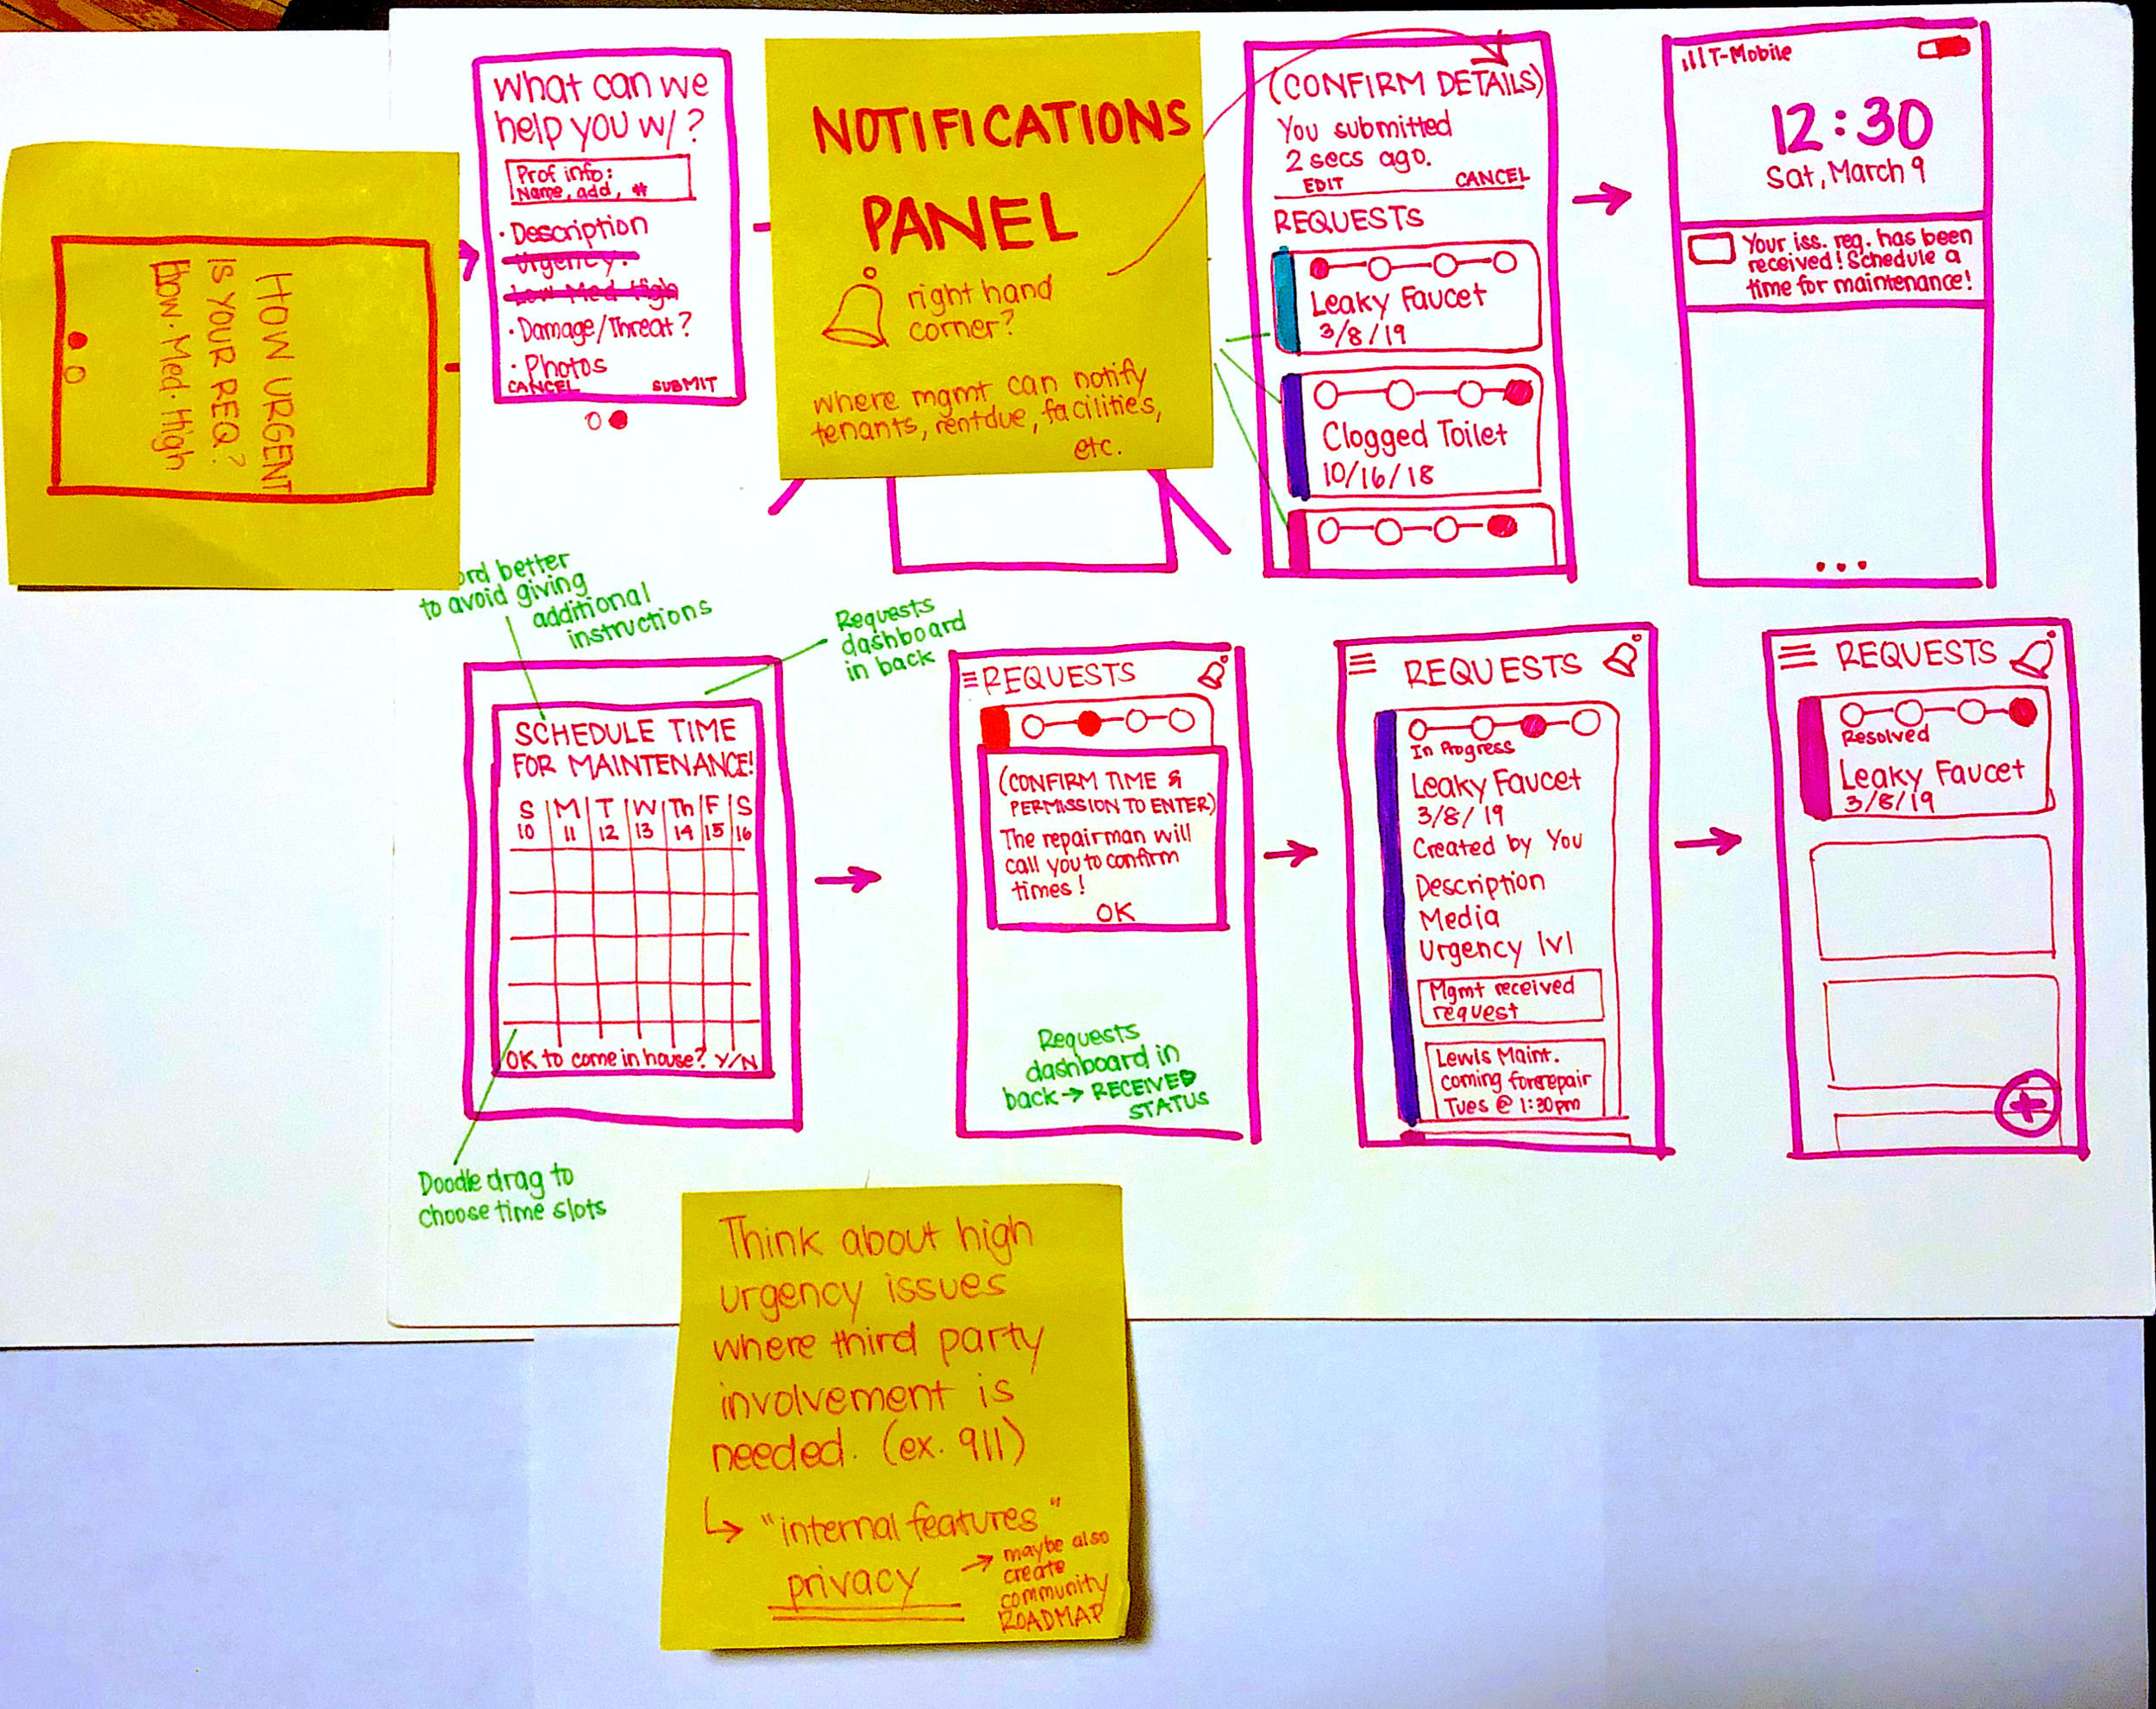 HOW URGENT
IS YOUR REQ?
Low · Med · High
What can we
help you w/?
Prof info:
Name, add, #
· Description
Urgency?
Low Med High
· Damage/Threat?
· Photos
CANCEL SUBMIT
NOTIFICATIONS
PANEL
right hand
corner?
where mgmt can notify
tenants, rent due, facilities,
etc.
(CONFIRM DETAILS)
You submitted
2 secs ago.
EDIT CANCEL
REQUESTS
Leaky Faucet
3/8/19
Clogged Toilet
10/16/18
T-Mobile
12:30
Sat, March 9
Your iss. req. has been
received! Schedule a
time for maintenance!
...
better
to avoid giving
additional
instructions
Requests
dashboard
in back
SCHEDULE TIME
FOR MAINTENANCE!
S M T W Th F S
10 11 12 13 14 15 16
OK to come in house? Y/N
Doodle drag to
choose time slots
REQUESTS
(CONFIRM TIME &
PERMISSION TO ENTER)
The repairman will
call you to confirm
times!
OK
Requests
dashboard in
back → RECEIVED
STATUS
REQUESTS
In Progress
Leaky Faucet
3/8/19
Created by You
Description
Media
Urgency lvl
Mgmt received
request
Lewis Maint.
coming for repair
Tues @ 1:30pm
REQUESTS
Resolved
Leaky Faucet
3/8/19
+
Think about high
urgency issues
where third party
involvement is
needed. (ex. 911)
↳ "internal features"
privacy
→ maybe also
create
community
ROADMAP